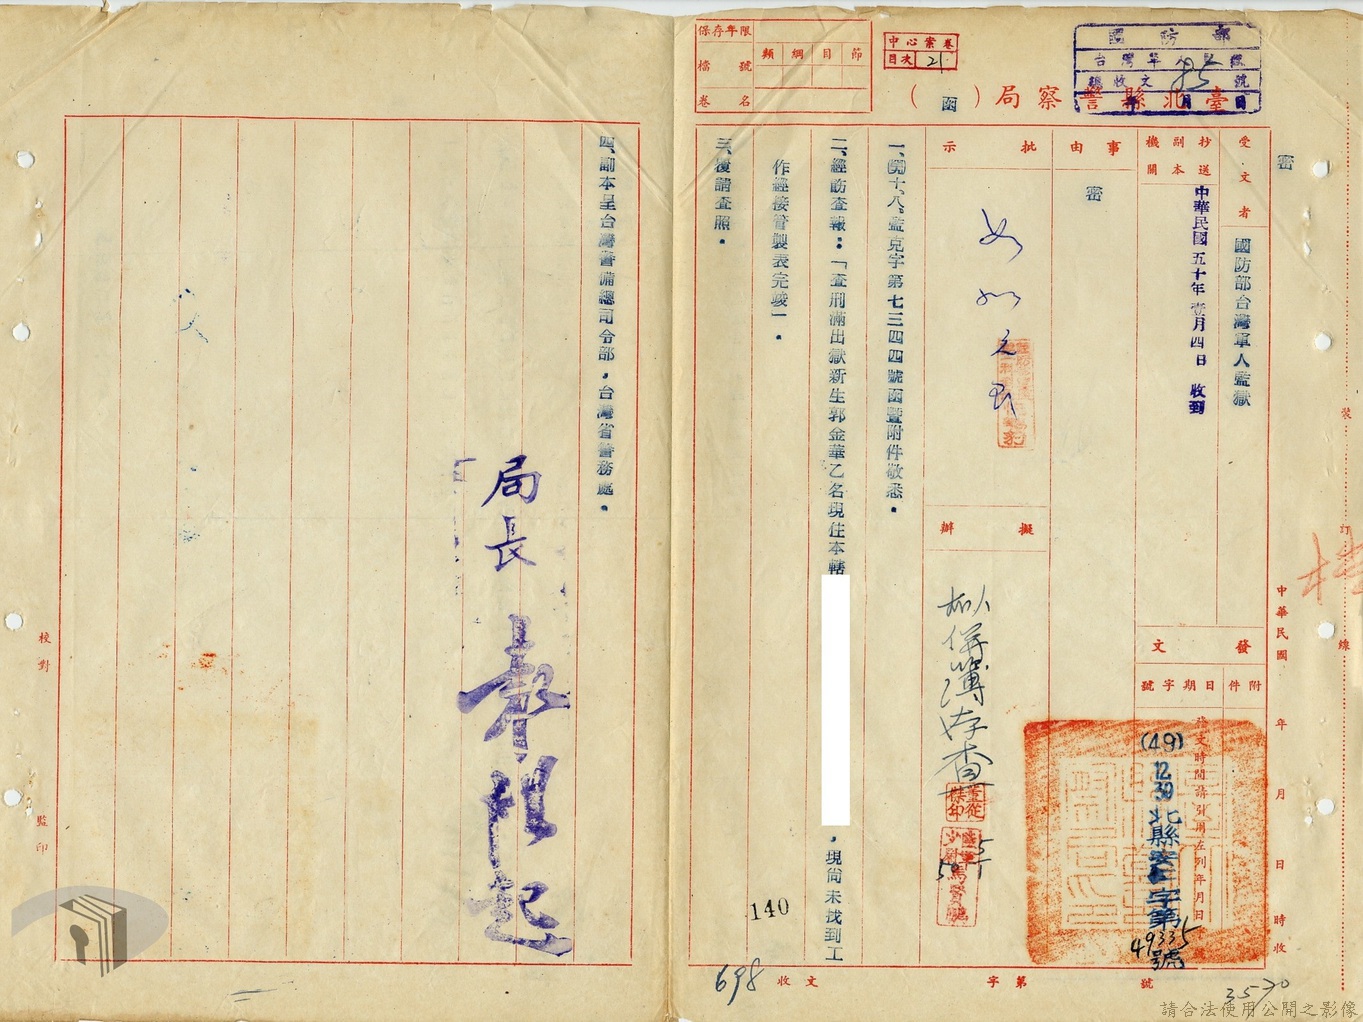 保存年限
檔號
卷名
類 綱 目 節
中心案卷
目次 21
國防部
總收文 號
年 月 日
臺北縣警察局(函)
密
受文者
國防部台灣軍人監獄
抄送副本機關
中華民國五十年壹月四日 收到
事由
密
批示
擬辦
擬併簿存查
發文
附件 日期字號
發文時間請引用左列年月日
(49)12 30 北縣警 字第49335號
一、(49)十、八、監克字第七三四四號函暨附件敬悉。
二、經飭查報：「查刑滿出獄新生郭金華乙名現住本轄
，現尚未找到工
作經接管製表完竣」。
三、復請查照。
四、副本呈台灣警備總司令部，台灣省警務處。
局長
中華民國 年 月 日 時收
裝 訂 線
校對
監印
140
698
收文 字第 號
3570
請合法使用公開之影像